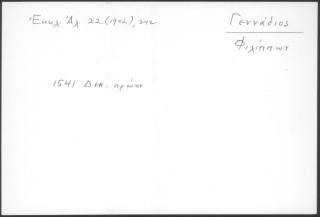 Ἐκκλ. Ἀλ. 22 (1902), 242
Γεννάδιος
Φιλίππων
1541 Δεκ. πρώην